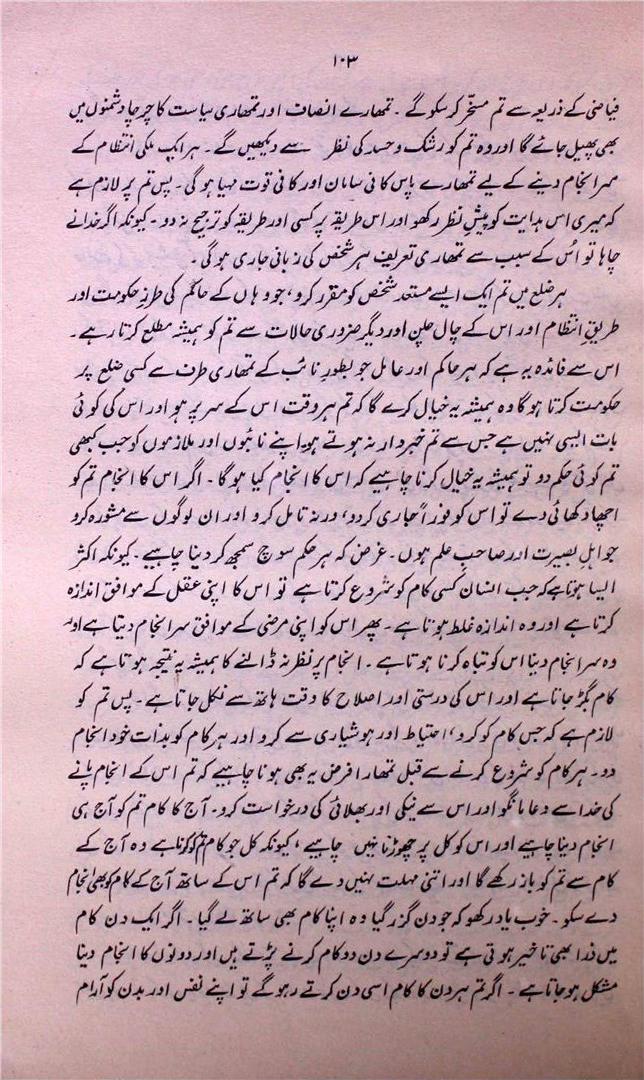 ۱۰۳
فیاضی کے ذریعہ سے تم مسخّر کر سکو گے ۔ تمھارے انصاف اور تمھاری سیاست کا چرچا دشمنوں میں
بھی پھیل جائے گا اور وہ تم کو رشک و حسد کی نظر سے دیکھیں گے ۔ ہر ایک ملکی انتظام کے
سرانجام دینے کے لیے تمھارے پاس کافی سامان اور کافی قوت مہیا ہوگی ۔ پس تم پر لازم ہے
کہ میری اس ہدایت کو پیش نظر رکھو اور اس طریقہ پر کسی اور طریقہ کو ترجیح نہ دو ۔ کیونکہ اگر خدا نے
چاہا تو اُس کے سبب سے تمھاری تعریف ہر شخص کی زبانی جاری ہوگی ۔
ہر ضلع میں تم ایک ایسے مستعد شخص کو مقرر کرو ، جو وہاں کے حاکم کی طرزِ حکومت اور
طریقِ انتظام اور اس کے چال چلن اور دیگر ضروری حالات سے تم کو ہمیشہ مطلع کرتا رہے ۔
اس سے فائدہ یہ ہے کہ ہر حاکم اور عامل جو بطور نائب کے تمھاری طرف سے کسی ضلع پر
حکومت کرتا ہوگا وہ ہمیشہ یہ خیال کرے گا کہ تم ہر وقت اس کے سر پر ہو اور اس کی کوئی
بات ایسی نہیں ہے جس سے تم خبردار نہ ہوتے ہو۔ اپنے نائبوں اور ملازموں کو جب کبھی
تم کوئی حکم دو تو ہمیشہ یہ خیال کرنا چاہیے کہ اس کا انجام کیا ہوگا ۔ اگر اس کا انجام تم کو
اچھا دکھائی دے تو اس کو فوراً جاری کردو ، ورنہ تامل کرو اور ان لوگوں سے مشورہ کرو
جو اہلِ بصیرت اور صاحبِ علم ہوں ۔ غرض کہ ہر حکم سوچ سمجھ کر دینا چاہیے ۔ کیونکہ اکثر
ایسا ہوتا ہے کہ جب انسان کسی کام کو شروع کرتا ہے تو اس کا اپنی عقل کے موافق اندازہ
کرتا ہے اور وہ اندازہ غلط ہوتا ہے ۔ پھر اس کو اپنی مرضی کے موافق سرانجام دیتا ہے اور
وہ سرانجام دینا اس کو تباہ کرنا ہوتا ہے ۔ انجام پر نظر نہ ڈالنے کا ہمیشہ یہ نتیجہ ہوتا ہے کہ
کام بگڑ جاتا ہے اور اس کی درستی اور اصلاح کا وقت ہاتھ سے نکل جاتا ہے ۔ پس تم کو
لازم ہے کہ جس کام کو کرو ، احتیاط اور ہوشیاری سے کرو اور ہر کام کو بذات خود انجام
دو ۔ ہر کام کو شروع کرنے سے قبل تمھارا فرض یہ بھی ہونا چاہیے کہ تم اس کے انجام پانے
کی خدا سے دعا مانگو اور اس سے نیکی اور بھلائی کی درخواست کرو ۔ آج کا کام تم کو آج ہی
انجام دینا چاہیے اور اس کو کل پر چھوڑنا نہیں چاہیے ، کیونکہ کل جو کام تم کو کرنا ہے وہ آج کے
کام سے تم کو باز رکھے گا اور اتنی مہلت نہیں دے گا کہ تم اس کے ساتھ آج کے کام کو بھی انجام
دے سکو ۔ خوب یاد رکھو کہ جو دن گزر گیا وہ اپنا کام بھی ساتھ لے گیا ۔ اگر ایک دن کام
میں ذرا بھی تاخیر ہوتی ہے تو دوسرے دن دو کام کرنے پڑتے ہیں اور دونوں کا انجام دینا
مشکل ہوجاتا ہے ۔ اگر تم ہر دن کا کام اسی دن کرتے رہو گے تو اپنے نفس اور بدن کو آرام